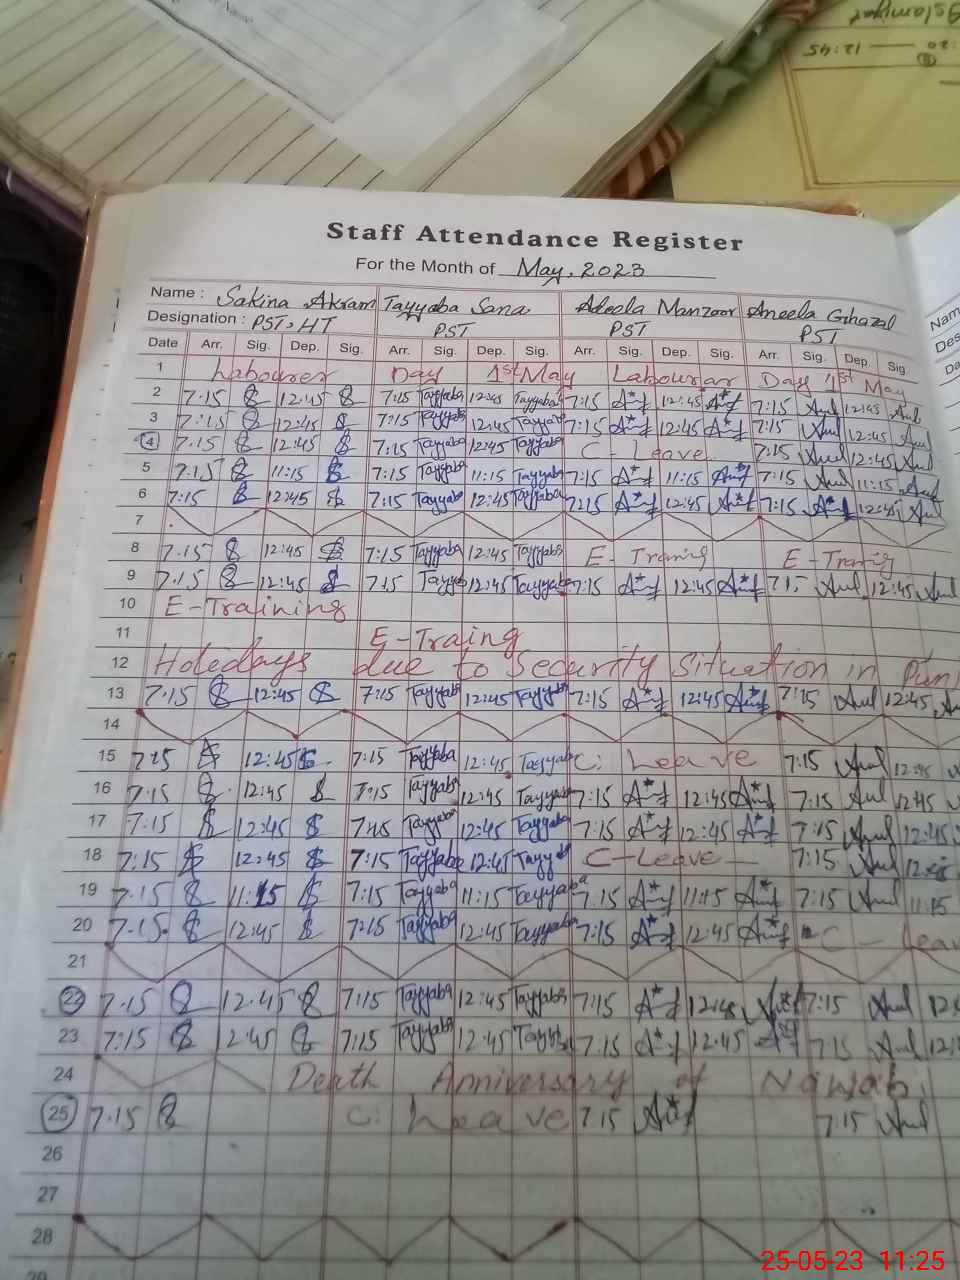 12:45
Staff Attendance Register
For the Month of May, 2023
Name : Sakina Akram Tayyaba Sana Adeela Manzoor Aneela Ghazal
Designation : PST, HT PST PST PST
Date Arr. Sig. Dep. Sig. Arr. Sig. Dep. Sig. Arr. Sig. Dep. Sig. Arr. Sig. Dep. Sig.
1 Labourer Day 1st May Labourar Day 1st May
2 7:15 12:45 7:15 Tayyaba 12:45 Tayyaba 7:15 12:45 7:15 12:45
3 7:15 12:45 7:15 Tayyaba 12:45 Tayyaba 7:15 12:45 7:15 12:45
4 7:15 12:45 7:15 Tayyaba 12:45 Tayyaba C - Leave 7:15 12:45
5 7:15 11:15 7:15 Tayyaba 11:15 Tayyaba 7:15 11:15 7:15 11:15
6 7:15 12:45 7:15 Tayyaba 12:45 Tayyaba 7:15 12:45 7:15 12:45
7
8 7.15 12:45 7:15 Tayyaba 12:45 Tayyaba E - Traning E - Tranig
9 7:15 12:45 7:15 Tayya 12:45 Tayyaba 7:15 12:45 12:45
10 E-Training
11 E-Traing
12 Holedays due to Security Situation in Pun
13 7:15 12:45 7:15 Tayyaba 12:45 Tayyaba 7:15 12:45 7:15 12:45
14
15 7:15 12:45 7:15 Tayyaba 12:45 Tayyaba C: Leave 7:15 12:45
16 7:15 12:45 7:15 Tayyaba 12:45 Tayyaba 7:15 12:45 7:15 12:45
17 7:15 12:45 Tayyaba 12:45 Tayyaba 7:15 12:45 7:15 12:45
18 7:15 12:45 7:15 Tayyaba 12:45 Tayy C-Leave 7:15 12:45
19 7.15 11:15 7:15 Tayyaba 11:15 Tayyaba 7.15 11:15 7:15 11:15
20 7.15 12:45 7:15 Tayyaba 12:45 Tayyaba 7:15 12:45 C - leav
21
22 7.15 12.45 7:15 Tayyaba 12:45 Tayyaba 7:15 12:45 7:15
23 7:15 12:45 7:15 Tayyaba 12:45 Tayyaba 7:15 12:45 7:15
24 Death Anniversary of Nawab
25 7.15 C: Leave 7:15 7:15
26
27
28
29
25-05-23 11:25